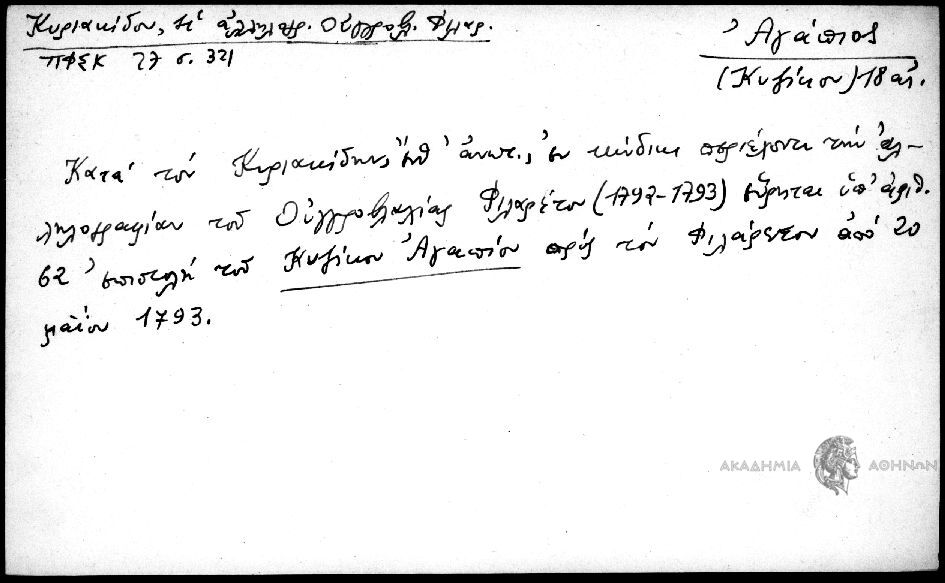 Κυριακίδου, Ἡ ἀλληλογρ. Οὑγγροβλ. Φιλαρ.
ΠΦΣΚ 27 σ. 321
Ἀγάπιος
(Κυζίκου) 18 αἰ.
Κατὰ τὸν Κυριακίδην, ἔνθ' ἀνωτ., ἐν κώδικι περιέχοντι τὴν ἀλ-
ληλογραφίαν τοῦ Οὑγγροβλαχίας Φιλαρέτου (1792-1793) εὕρηται ὑπ' ἀριθ.
62 ἐπιστολὴ τοῦ Κυζίκου Ἀγαπίου πρὸς τὸν Φιλάρετον ἀπὸ 20
μαΐου 1793.
ΑΚΑΔΗΜΙΑ ΑΘΗΝΩΝ